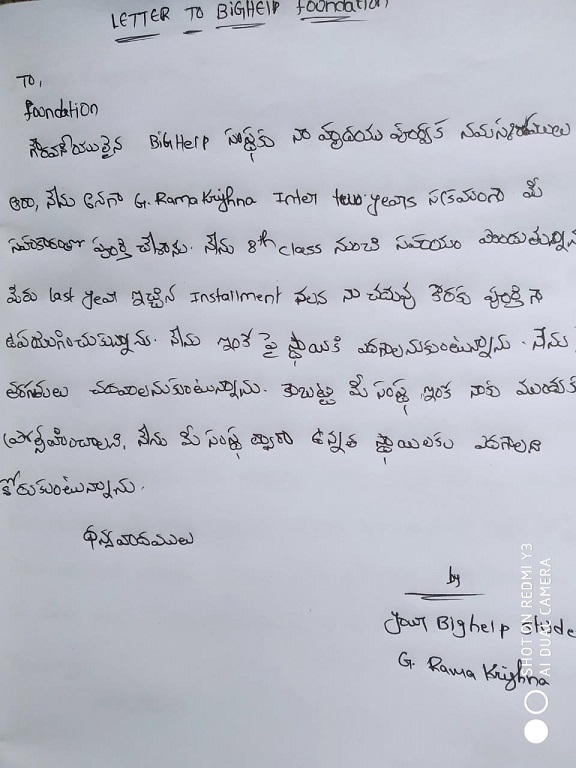 LETTER TO BIGHELP foundation
TO,
foundation
గౌరవనీయులైన BigHelp సంస్థకు నా హృదయ పూర్వక నమస్కారములు
నేను అనగా G. Rama Krishna Inter two years సక్రమంగా మీ
సహకారంతో పూర్తి చేశాను. నేను 8th class నుంచి సహాయం పొందుతున్నాను
మీరు last year ఇచ్చిన Installment వలన నా చదువు కొరకు పూర్తిగా
ఉపయోగించుకున్నాను. నేను ఇంకే పై స్థాయికి ఎదగాలనుకుంటున్నాను. నేను
తరగతులు చదవాలనుకుంటున్నాను. కాబట్టి మీ సంస్థ ఇంకా నాకు ముందుకు
ప్రోత్సహించాలని, నేను మీ సంస్థ ద్వారా ఉన్నత స్థాయిలకు ఎదగాలని
కోరుకుంటున్నాను.
ధన్యవాదములు
by
your Bighelp Stude
G. Rama Krishna
SHOT ON REDMI Y3
AI DUAL CAMERA